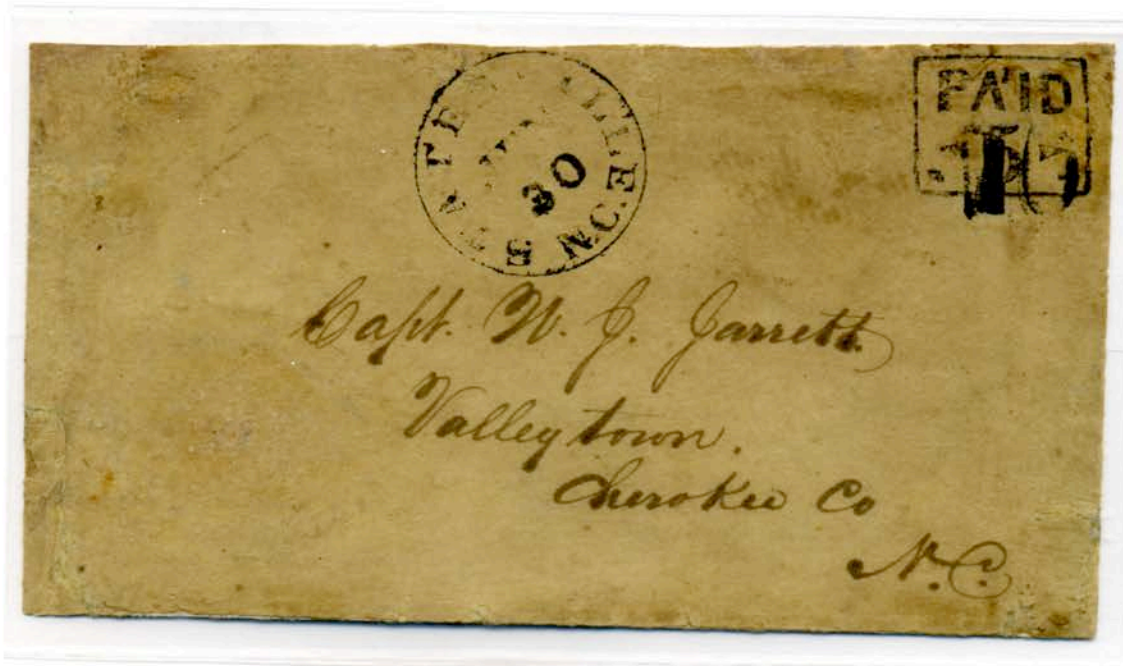 STATESVILLE N.C
30
PAID
10
Capt. W. J. Jarrett
Valleytown.
Cherokee Co
N.C.